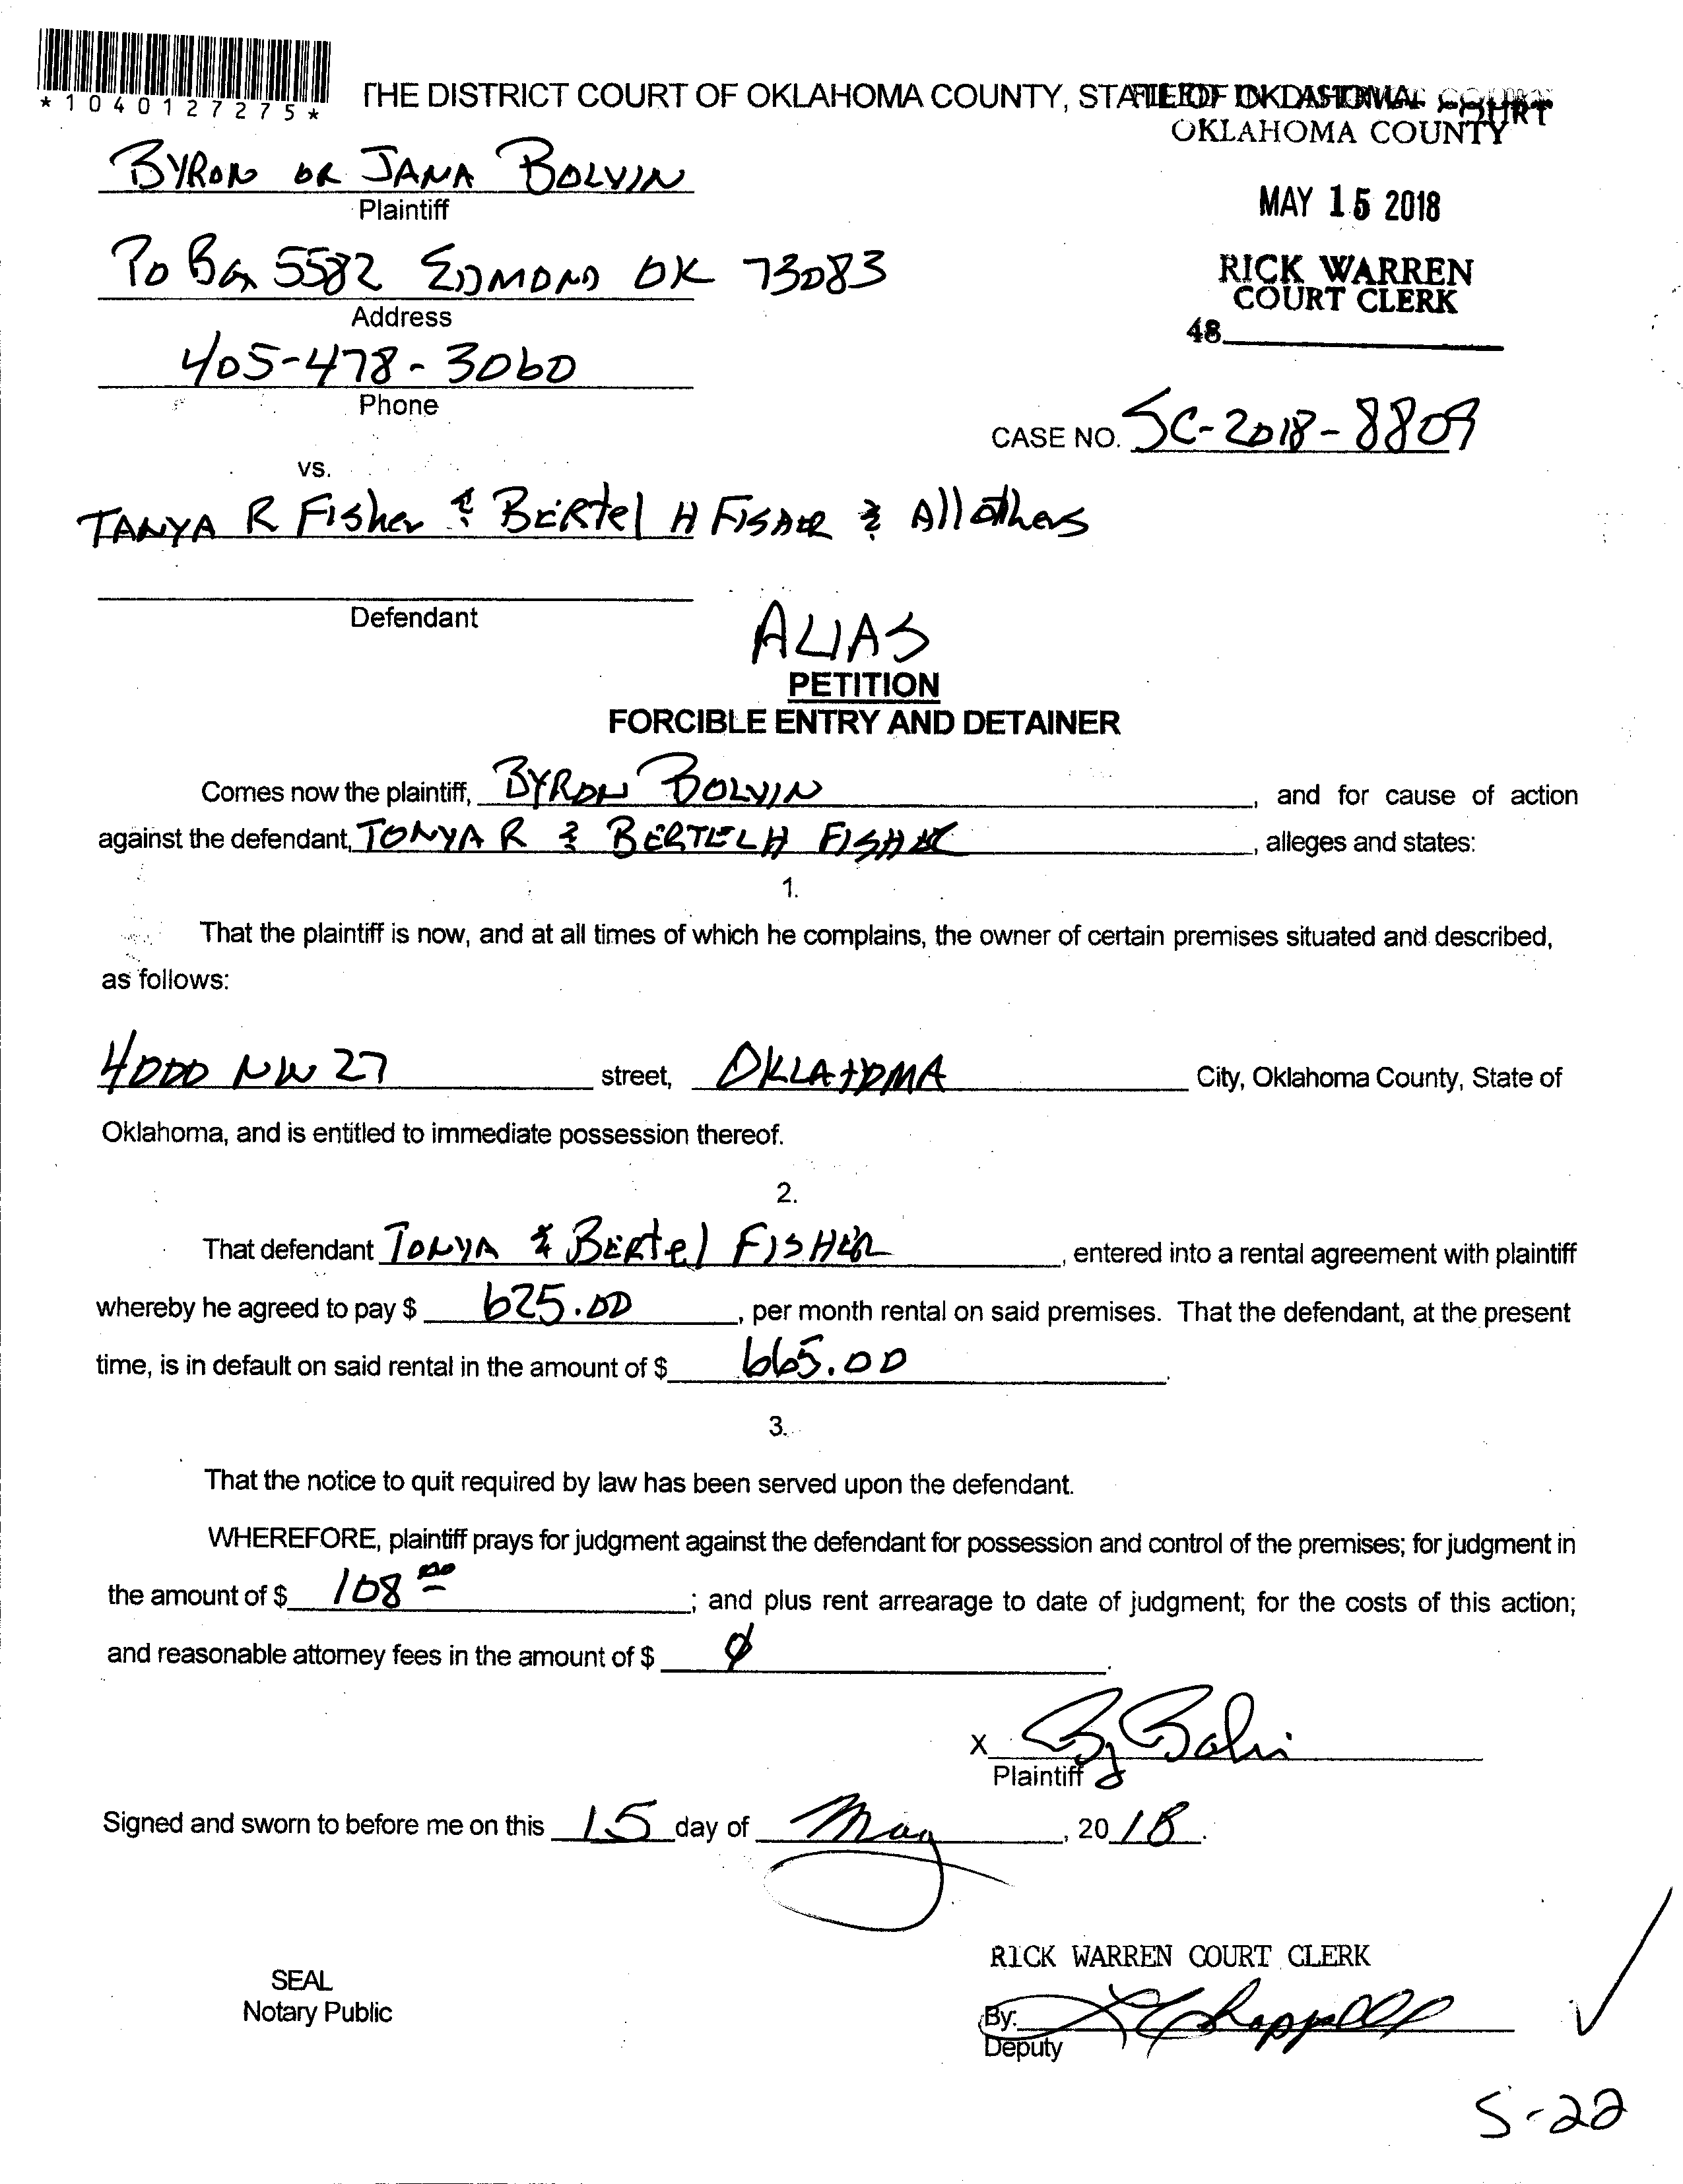 *1040127275*
THE DISTRICT COURT OF OKLAHOMA COUNTY, STATE OF OKLAHOMA
FILED IN DISTRICT COURT
OKLAHOMA COUNTY
MAY 15 2018
RICK WARREN
COURT CLERK
48
BYRON OR JANA BOLVIN
Plaintiff
PO Box 5582 EDMOND OK 73083
Address
405-478-3060
Phone
CASE NO. SC-2018-8809
vs.
TANYA R Fisher & BERtel H FISHER & All others
Defendant
ALIAS
PETITION
FORCIBLE ENTRY AND DETAINER
Comes now the plaintiff, BYRON BOLVIN, and for cause of action
against the defendant, TONYA R & BERTEL H FISHER, alleges and states:
1.
That the plaintiff is now, and at all times of which he complains, the owner of certain premises situated and described,
as follows:
4000 NW 27 street, OKLAHOMA City, Oklahoma County, State of
Oklahoma, and is entitled to immediate possession thereof.
2.
That defendant TONYA & BERtel FISHER, entered into a rental agreement with plaintiff
whereby he agreed to pay $ 625.00, per month rental on said premises. That the defendant, at the present
time, is in default on said rental in the amount of $ 665.00.
3.
That the notice to quit required by law has been served upon the defendant.
WHEREFORE, plaintiff prays for judgment against the defendant for possession and control of the premises; for judgment in
the amount of $ 108 00; and plus rent arrearage to date of judgment; for the costs of this action;
and reasonable attorney fees in the amount of $ 0.
X
Plaintiff
Signed and sworn to before me on this 15 day of May, 2018.
RICK WARREN COURT CLERK
SEAL
Notary Public
By:
Deputy
5-22